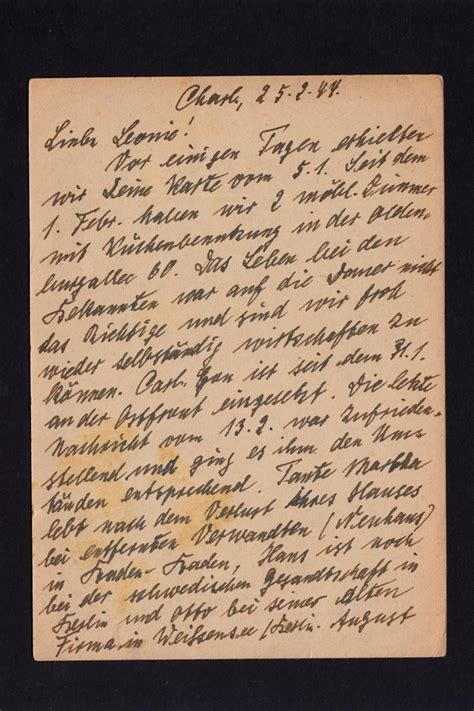 Charl., 25.2.44.
Liebe Leonie!
Vor einigen Tagen erhielten
wir Deine Karte vom 5.1. Seit dem
1. Febr. haben wir 2 möbl. Zimmer
mit Küchenbenutzung in der Olden-
burgallee 60. Das Leben bei den
Bekannten war auf die Dauer nicht
das Richtige und sind wir froh
wieder selbständig wirtschaften zu
können. Carl ist seit dem 31.1.
an der Ostfront eingesetzt. Die letzte
Nachricht vom 13.2. war zufrieden-
stellend und ging es ihm den Um-
ständen entsprechend. Tante Martha
lebt nach dem Verlust ihres Hauses
bei entfernten Verwandten (Neuhaus)
in Baden-Baden, Hans ist noch
bei der schwedischen Gesandtschaft in
Berlin und Otto bei seiner alten
Firma in Weißensee (Berlin. August